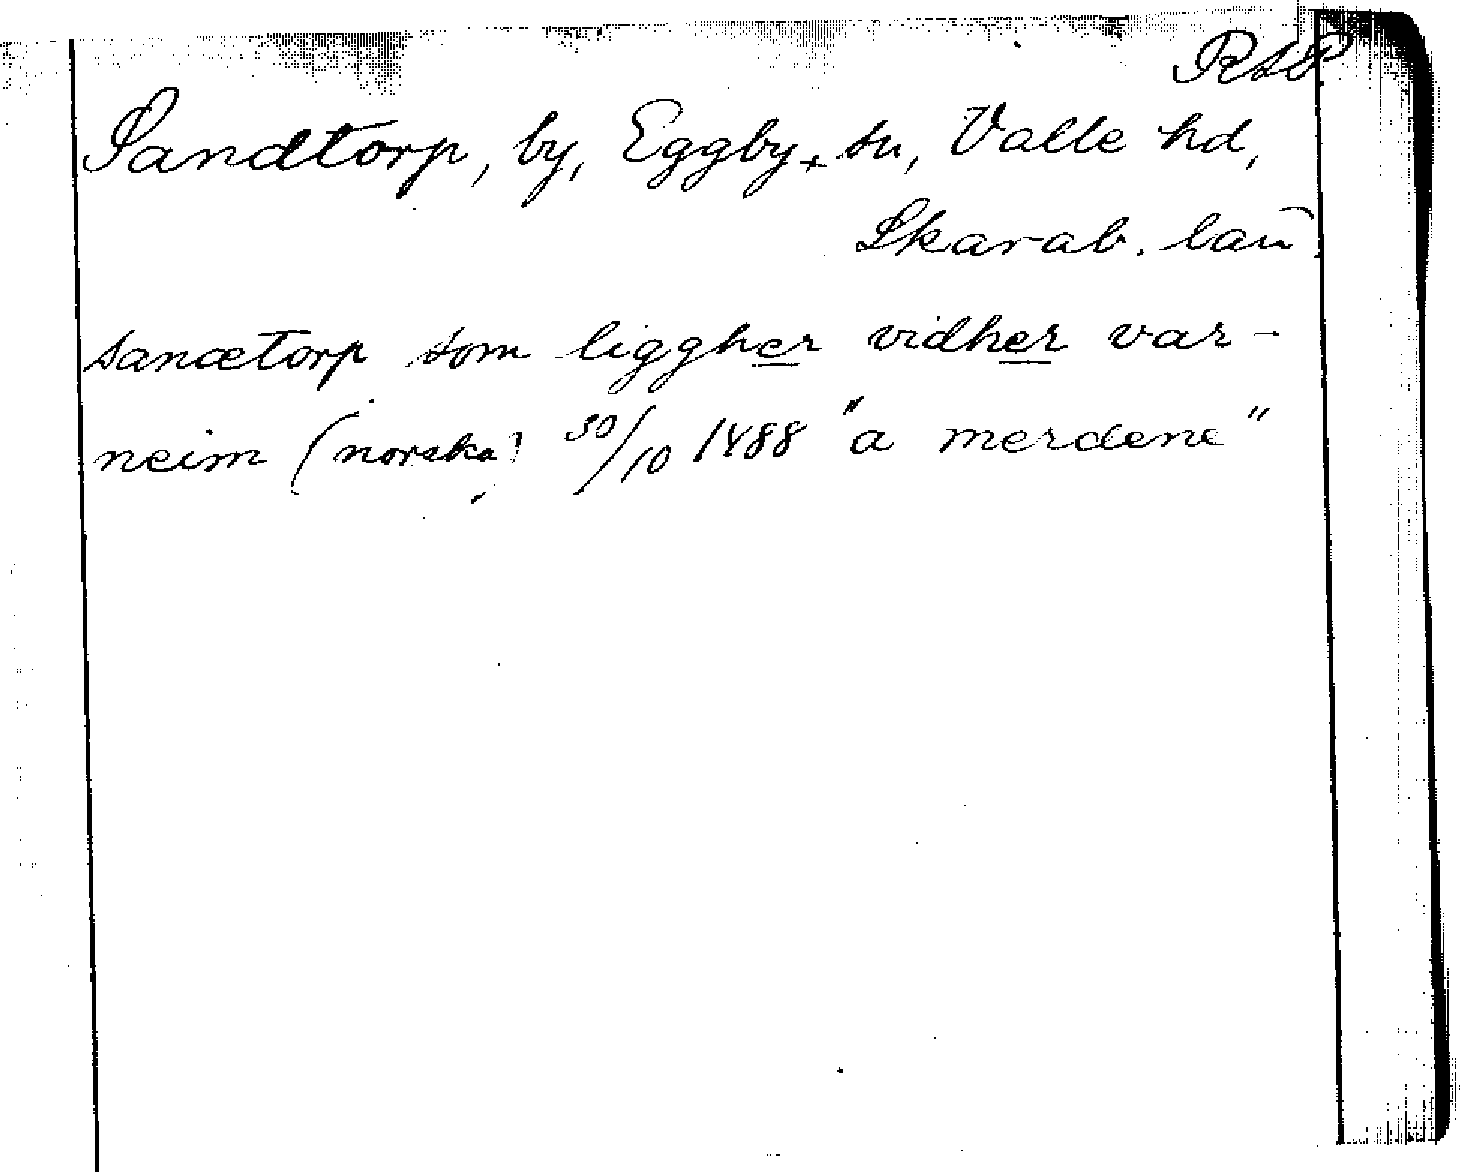 RAP
Sandtorp, by, Eggby + sn, Valle hd,
Skarab. län
sanætorp som liggher vidher var-
neim (norska) 30/10 1488 "a merdene"